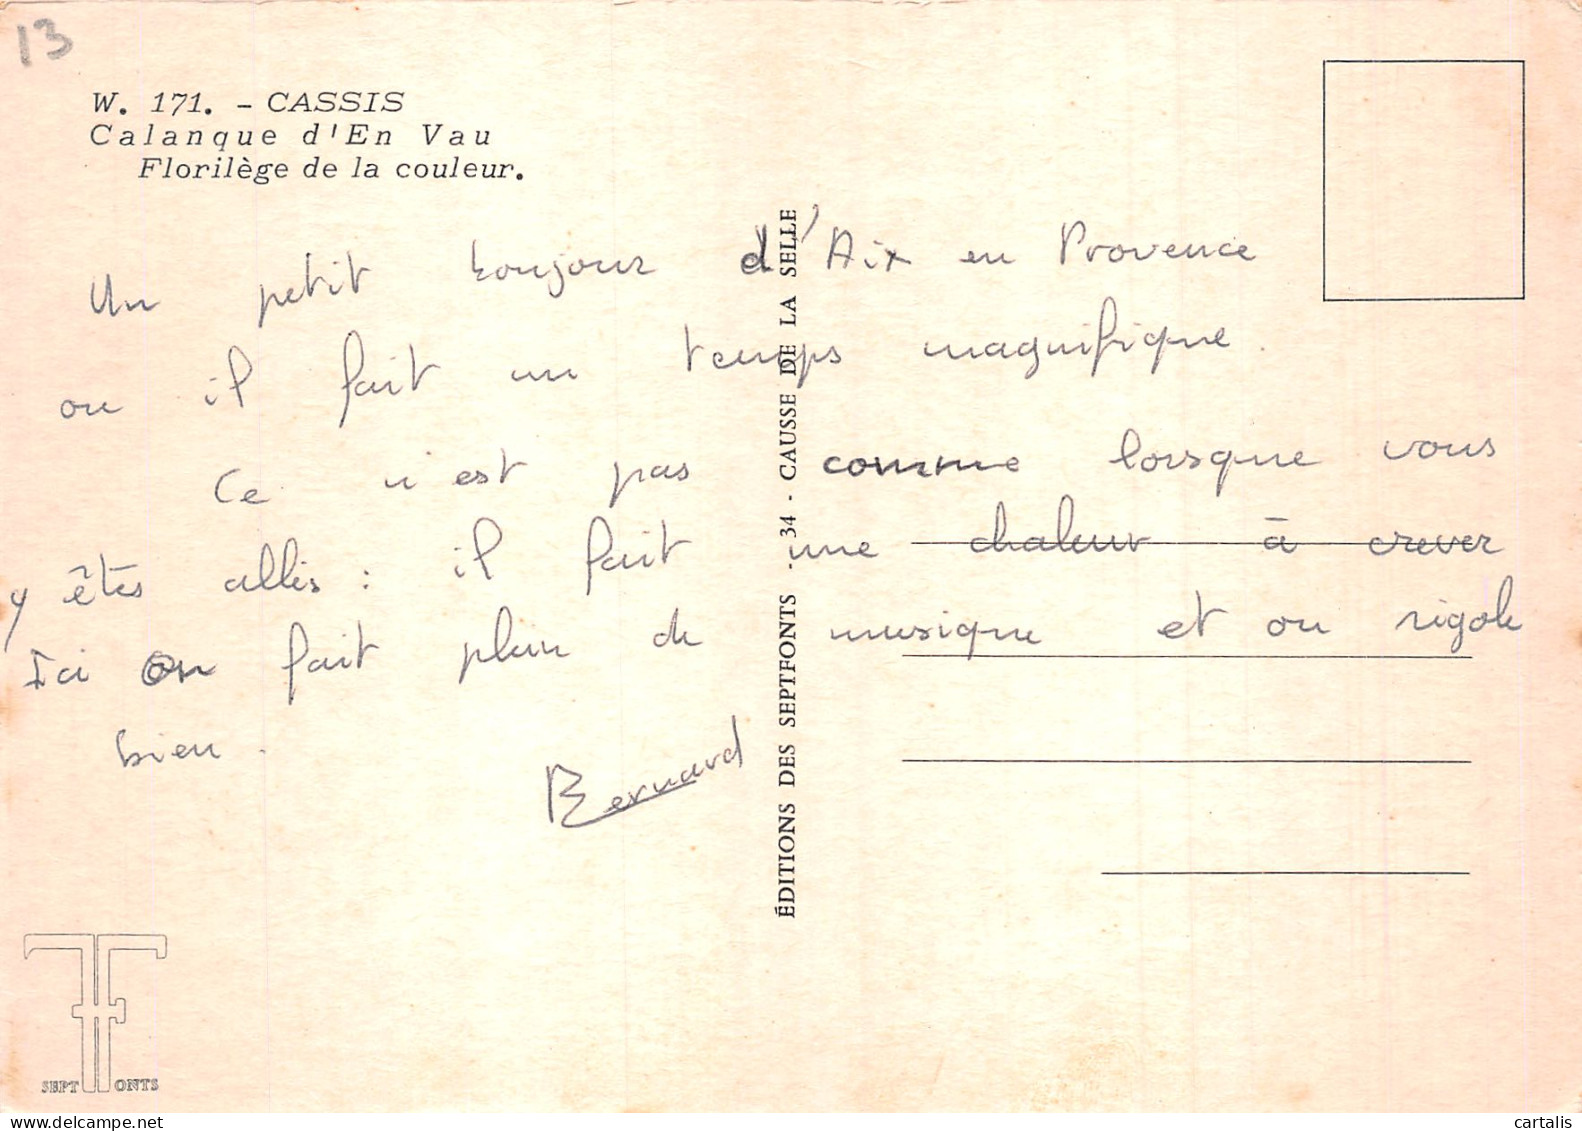 13
W. 171. - CASSIS
Calanque d'En Vau
Florilège de la couleur.
Un petit bonjour d'Aix en Provence
ou il fait un temps magnifique.
Ce n'est pas comme lorsque vous
y êtes allés : il fait une chaleur à crever
Ici on fait plein de musique et on rigole
bien.
Bernard
ÉDITIONS DES SEPTFONTS - 34 - CAUSSE DE LA SELLE
SEPT FONTS
cartalis